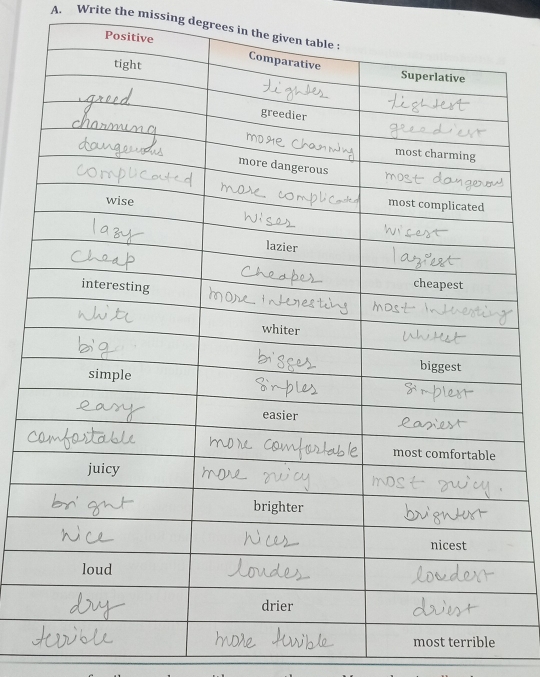 A. Write the missing degrees in the given table :
Positive Comparative Superlative
tight tighter tightest
greed greedier greediest
charming more charming most charming
dangerous more dangerous most dangerous
complicated more complicated most complicated
wise wiser wisest
lazy lazier laziest
cheap cheaper cheapest
interesting more interesting most interesting
white whiter whitest
big bigger biggest
simple simpler simplest
easy easier easiest
comfortable more comfortable most comfortable
juicy more juicy most juicy.
bright brighter brightest
nice nicer nicest
loud louder loudest
dry drier driest
terrible more terrible most terrible